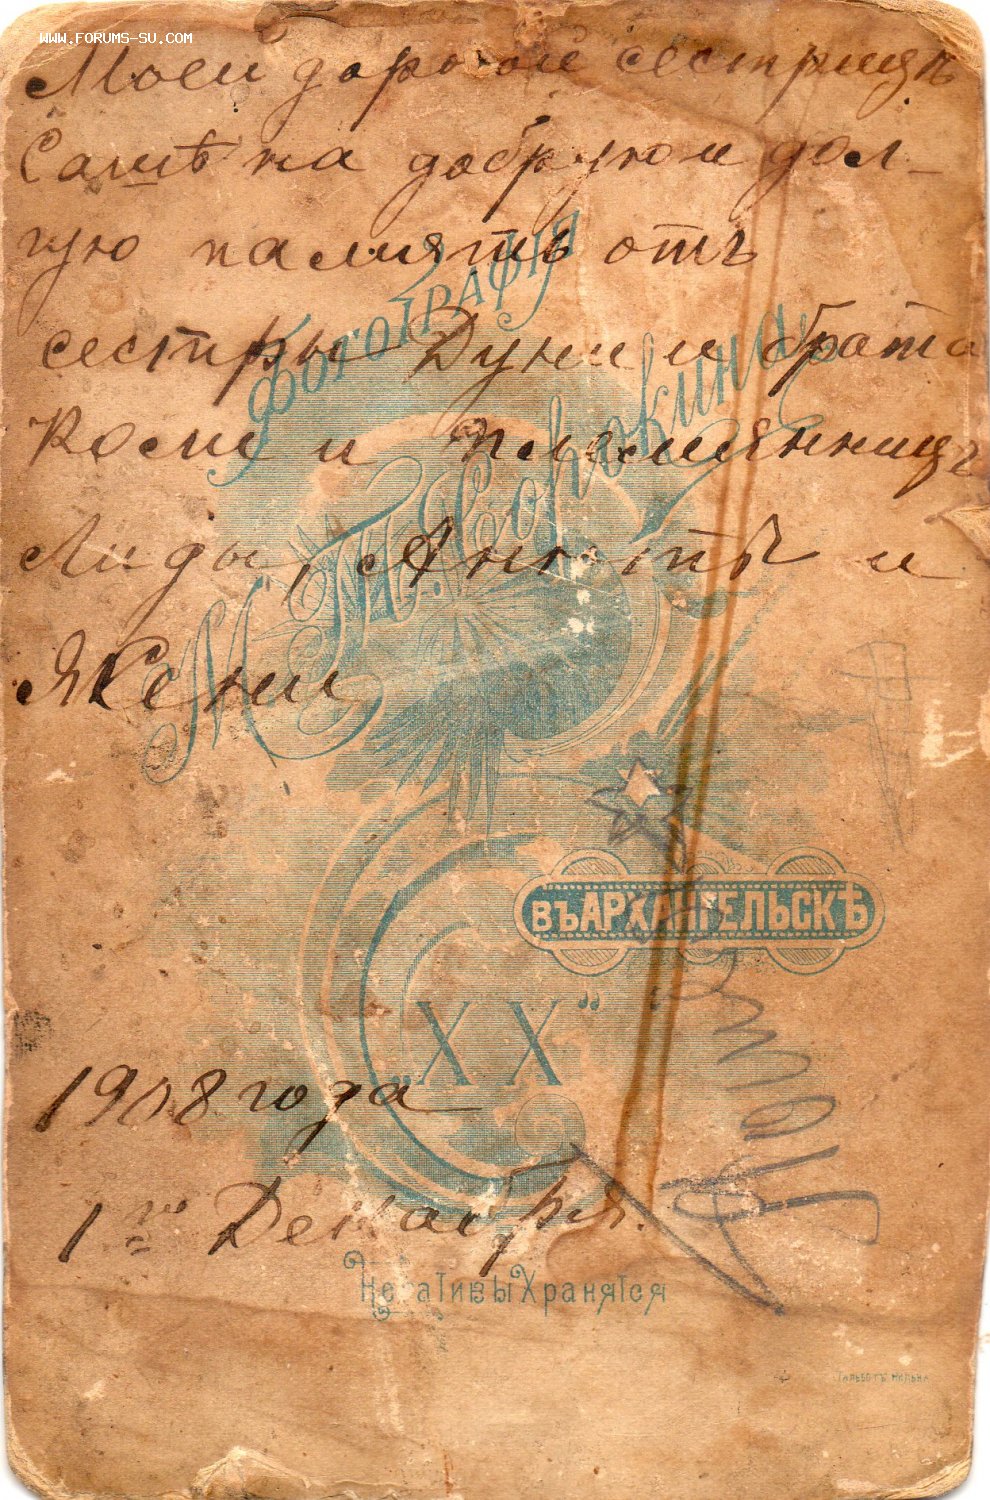 WWW.FORUMS-SU.COM
Моей дорогой сестрицѣ
Сашѣ на добрую и дол-
гую память отъ
сестры Дуни и брата
Коли и племянницъ
Лиды, Анютѣ и
Ѫени
ФОТОГРАФІЯ
М.Т. Сорокина
ВЪ АРХАНГЕЛЬСКѢ
„XX“
1908 года
1го Декабря.
Негативы Хранятся